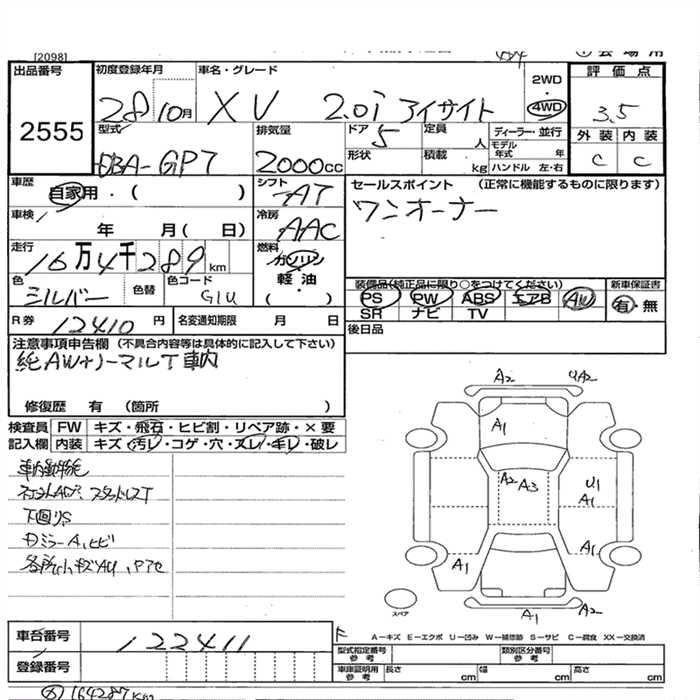 [2098]
出品番号
2555
初度登録年月
28 10月
車名・グレード
XV 2.0i アイサイト
2WD
・
4WD
評価点
3.5
外装 内装
C C
型式
DBA-GP7
排気量
2000cc
ドア 5
定員 人
ディーラー・並行
形状
積載 kg
モデル年式 年
ハンドル 左・右
車歴
自家用・( )
シフト
AT
セールスポイント (正常に機能するものに限ります)
ワンオーナー
車検
年 月( 日)
冷房
AAC
走行
16万4千289km
燃料
ガソリン
軽油
( )
色
シルバー
色替
色コード
G1U
装備品(純正品に限り○をつけてください)
新車保証書
PS PW ABS エアB AW
SR ナビ TV
有・無
R券 12410円
名変通知期限 月 日
後日品
注意事項申告欄(不具合内容等は具体的に記入して下さい)
純AW+ノーマルT車内
修復歴 有 (箇所 )
検査員 FW キズ・飛石・ヒビ割・リペア跡・×要
記入欄 内装 キズ・汚レ・コゲ・穴・スレ・キレ・破レ
下回りS
ミラーA,ヒビ
A2 UA2
A1
A2 A3
U1
A1
A1
A1
A1 A2
スペア
車台番号 122411
登録番号
F
A−キズ E−エクボ U−凹み W−補修跡 S−サビ C−腐食 XX−交換済
型式指定番号
参考
類別区分番号
参考
車体証明用
参考
長さ cm
幅 cm
高さ cm
164287km